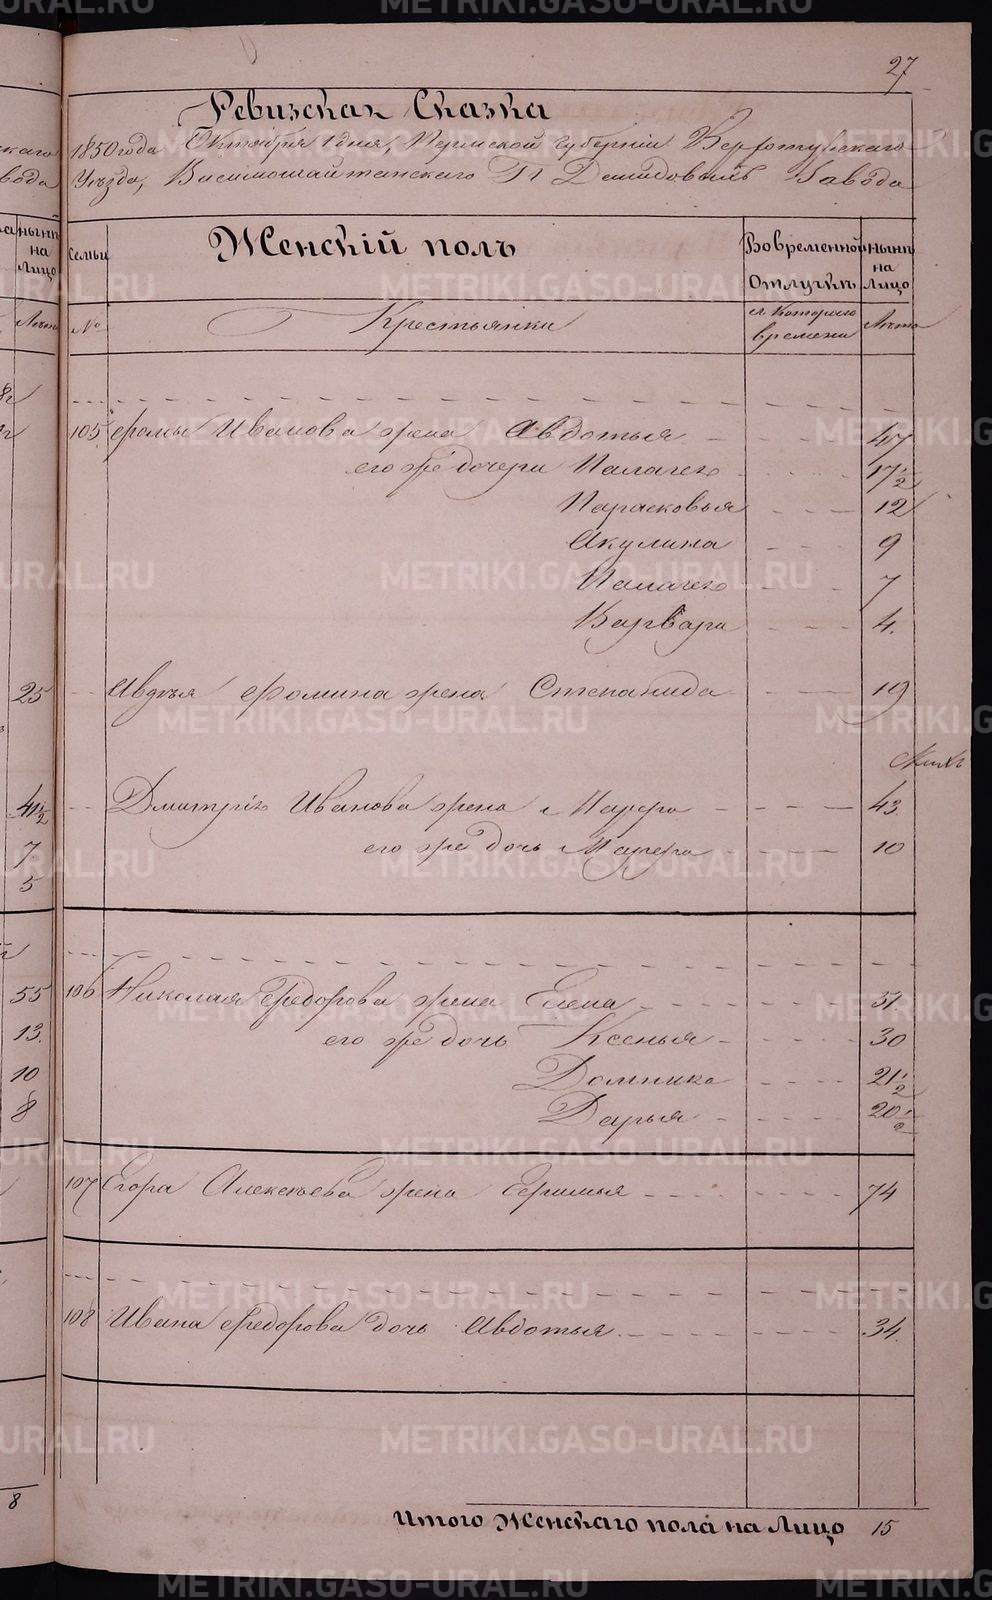 27
Ревизская Сказка
1850 года Октября 1 дня, Пермской Губернiи Верхотурскаго
Уѣзда, Висимошайтанскаго Гг Демидовыхъ Завода
Семьи
Женскiй полъ
Во временной Отлучкѣ
нынѣ на Лицо
№
Крестьянки
съ Котораго времени
Лѣта
105 Фомы Иванова жена Авдотья 47
его же дочери Палагея 17 1/2
Парасковья 12
Акулина 9
Палагея 7
Варвара 4.
Авдѣя Фомина жена Степанида 19
Дмитрiя Иванова жена Марфа 43.
его же дочь Марфа 10
106 Николая Федорова жена Елена 51.
его же дочь Ксенья 30
Домника 21 1/2
Дарья 20 1/2
107 Егора Алексѣева жена 74
108 Ивана Федорова дочь Авдотья 34.
Итого Женскаго пола на Лицо 15
25
41 1/2
7
5
55
13.
10
8
8
METRIKI.GASO-URAL.RU